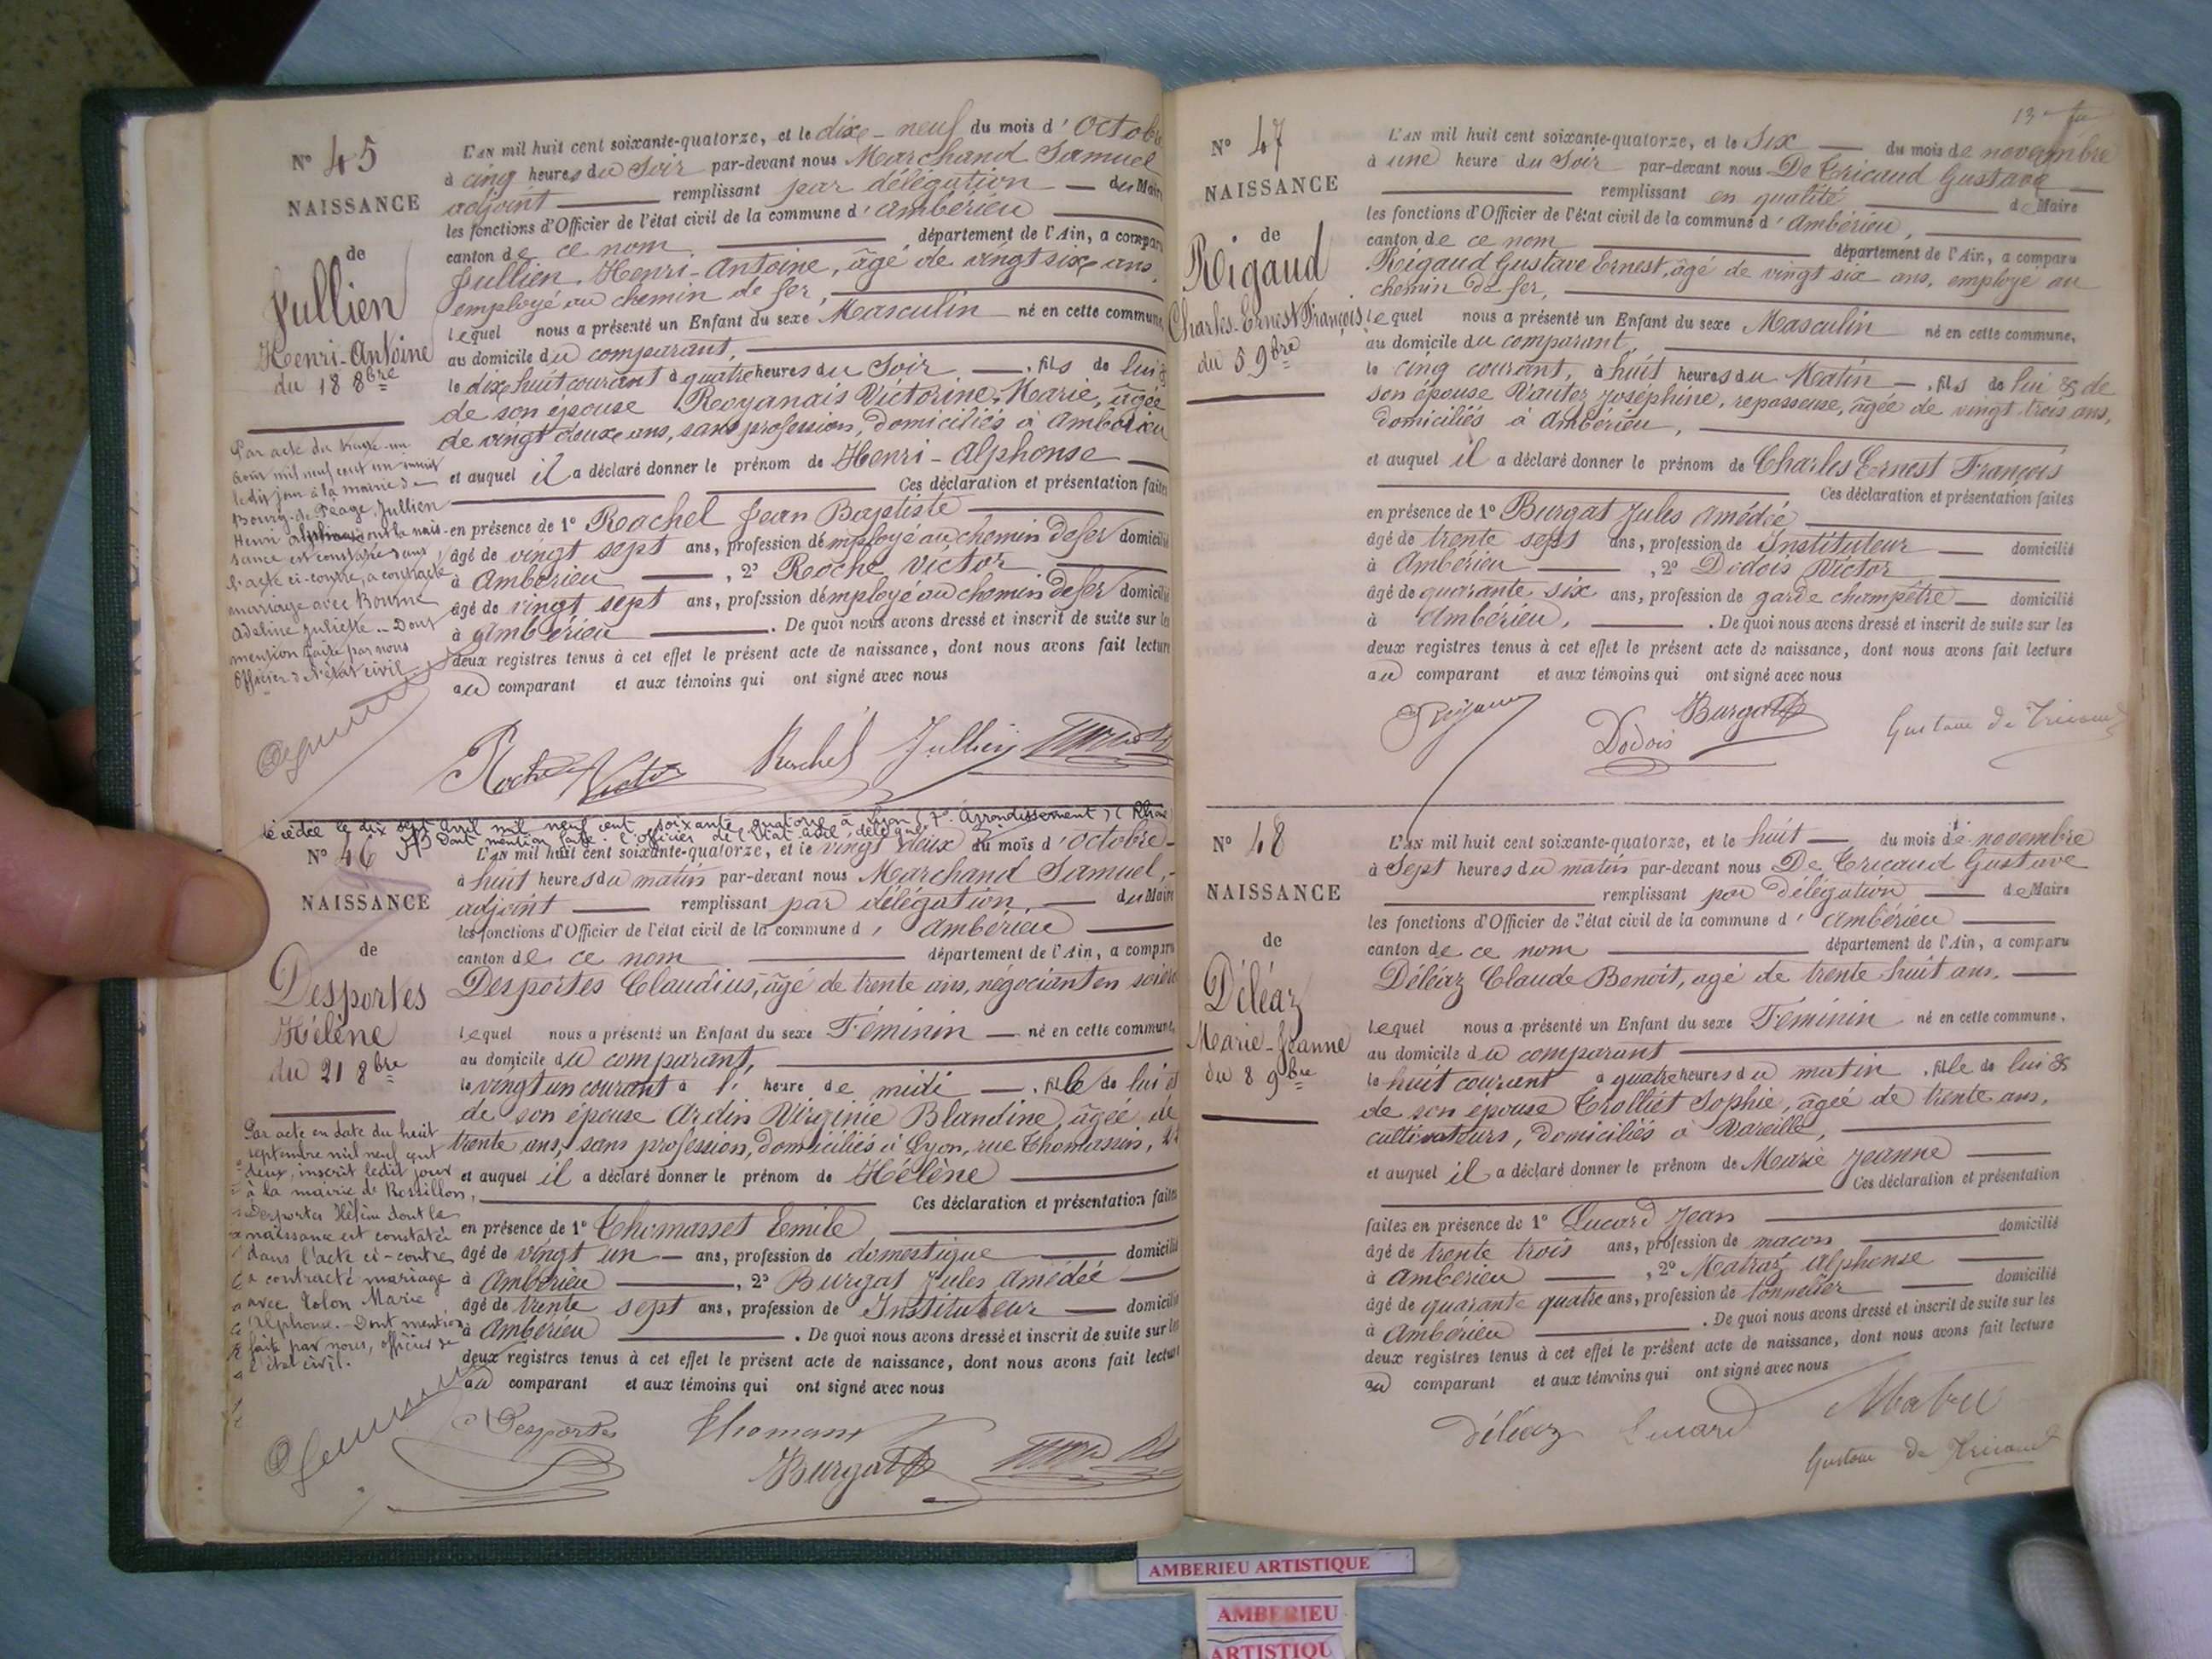 N° 45
NAISSANCE
de
Jullien
Henri-Antoine
du 18 8bre
L'AN mil huit cent soixante-quatorze, et le dixe-neuf du mois d'Octobre
à cinq heures du Soir par-devant nous Marchand Samuel
adjoint remplissant par délégation du Maire
les fonctions d'Officier de l'état civil de la commune d'Ambérieu
canton de ce nom département de l'Ain, a comparu
Jullien Henri-Antoine, âgé de vingt sixe ans,
employé au chemin de fer,
lequel nous a présenté un Enfant du sexe Masculin né en cette commune,
au domicile du comparant,
le dixe huit courant à quatre heures du Soir, fils de lui &
de son épouse Royanais Victorine, Marie, âgée
de vingt deuxe ans, sans profession, domiciliés à Ambérieu
et auquel il a déclaré donner le prénom de Henri-Alphonse
Ces déclaration et présentation faites
en présence de 1° Rachel Jean Baptiste
âgé de vingt sept ans, profession d'employé au chemin de fer domicilié
à Ambérieu, 2° Roche Victor
âgé de vingt sept ans, profession d'employé au chemin de fer domicilié
à Ambérieu. De quoi nous avons dressé et inscrit de suite sur les
deux registres tenus à cet effet le présent acte de naissance, dont nous avons fait lecture
au comparant et aux témoins qui ont signé avec nous
Par acte du trente-un
Août mil neuf cent un inscrit
ledit jour à la mairie de
Bourg-de-Péage, Jullien
Henri Alphonse dont la nais-
sance est constatée dans
l'acte ci-contre, a contracté
mariage avec Bourne
Adeline Juliette. Dont
mention faite par nous
Officier de l'état civil
Roche Victor Rachel Jullien
Décédée le dix sept Avril mil neuf cent soixante quatorze à Lyon (7e Arrondissement) (Rhône
Dont mention faite l'officier de l'état civil délégué
N° 46
NAISSANCE
de
Desportes
Hélène
du 21 8bre
L'AN mil huit cent soixante-quatorze, et le vingt deux du mois d'Octobre
à huit heures du matin par-devant nous Marchand Samuel,
adjoint remplissant par délégation, du Maire
les fonctions d'Officier de l'état civil de la commune d'Ambérieu
canton de ce nom département de l'Ain, a comparu
Desportes Claudius, âgé de trente ans, négociant en soierie
lequel nous a présenté un Enfant du sexe Féminin né en cette commune,
au domicile du comparant,
le vingt un courant à l' heure de midi, fille de lui et
de son épouse Ardin Virginie Blandine, âgée de
trente ans, sans profession, domiciliés à Lyon, rue Thomassin,
et auquel il a déclaré donner le prénom de Hélène
Ces déclaration et présentation faites
en présence de 1° Thomasset Emile
âgé de vingt un ans, profession de domestique domicilié
à Ambérieu, 2° Burgat Jules Amédée
âgé de trente sept ans, profession de Instituteur domicilié
à Ambérieu. De quoi nous avons dressé et inscrit de suite sur les
deux registres tenus à cet effet le présent acte de naissance, dont nous avons fait lecture
au comparant et aux témoins qui ont signé avec nous
Par acte en date du huit
septembre mil neuf cent
deux, inscrit ledit jour
à la mairie de Rossillon,
Desportes Hélène dont la
naissance est constatée
dans l'acte ci-contre
a contracté mariage
avec Tolon Marie
Alphonse. Dont mention
faite par nous, officier de
l'état civil.
Desportes Thomasset
Burgat
13e fe
N° 47
NAISSANCE
de
Rigaud
Charles-Ernest François
du 5 9bre
L'AN mil huit cent soixante-quatorze, et le Six du mois de novembre
à une heure du Soir par-devant nous De Tricaud Gustave
remplissant en qualité de Maire
les fonctions d'Officier de l'état civil de la commune d'Ambérieu,
canton de ce nom département de l'Ain, a comparu
Rigaud Gustave Ernest, âgé de vingt six ans, employé au
chemin de fer,
lequel nous a présenté un Enfant du sexe Masculin né en cette commune,
au domicile du comparant,
le cinq courant, à huit heures du Matin, fils de lui & de
son épouse Vautez Joséphine, repasseuse, âgée de vingt trois ans,
domiciliés à Ambérieu,
et auquel il a déclaré donner le prénom de Charles Ernest François
Ces déclaration et présentation faites
en présence de 1° Burgat Jules Amédée
âgé de trente sept ans, profession de Instituteur domicilié
à Ambérieu, 2° Dodois Victor
âgé de quarante six ans, profession de garde champêtre domicilié
à Ambérieu. De quoi nous avons dressé et inscrit de suite sur les
deux registres tenus à cet effet le présent acte de naissance, dont nous avons fait lecture
au comparant et aux témoins qui ont signé avec nous
Rigaud Dodois Burgat Gustave de Tricaud
N° 48
NAISSANCE
de
Déléaz
Marie-Jeanne
du 8 9bre
L'AN mil huit cent soixante-quatorze, et le huit du mois de novembre
à Sept heures du matin par-devant nous De Tricaud Gustave
remplissant par délégation de Maire
les fonctions d'Officier de l'état civil de la commune d'Ambérieu
canton de ce nom département de l'Ain, a comparu
Déléaz Claude Benoit, agé de trente huit ans.
lequel nous a présenté un Enfant du sexe Féminin né en cette commune,
au domicile du comparant
le huit courant à quatre heures du matin, fille de lui &
de son épouse Trolliet Sophie, agée de trente ans,
cultivateurs, domiciliés à Vareille,
et auquel il a déclaré donner le prénom de Marie Jeanne
Ces déclaration et présentation
faites en présence de 1° Lucard Jean domicilié
âgé de trente trois ans, profession de maçon
à Ambérieu, 2° Matraz Alphonse
âgé de quarante quatre ans, profession de tonnelier domicilié
à Ambérieu. De quoi nous avons dressé et inscrit de suite sur les
deux registres tenus à cet effet le présent acte de naissance, dont nous avons fait lecture
au comparant et aux témoins qui ont signé avec nous
Déléaz Lucard
Gustave de Tricaud
AMBERIEU ARTISTIQUE
AMBERIEU
ARTISTIQU